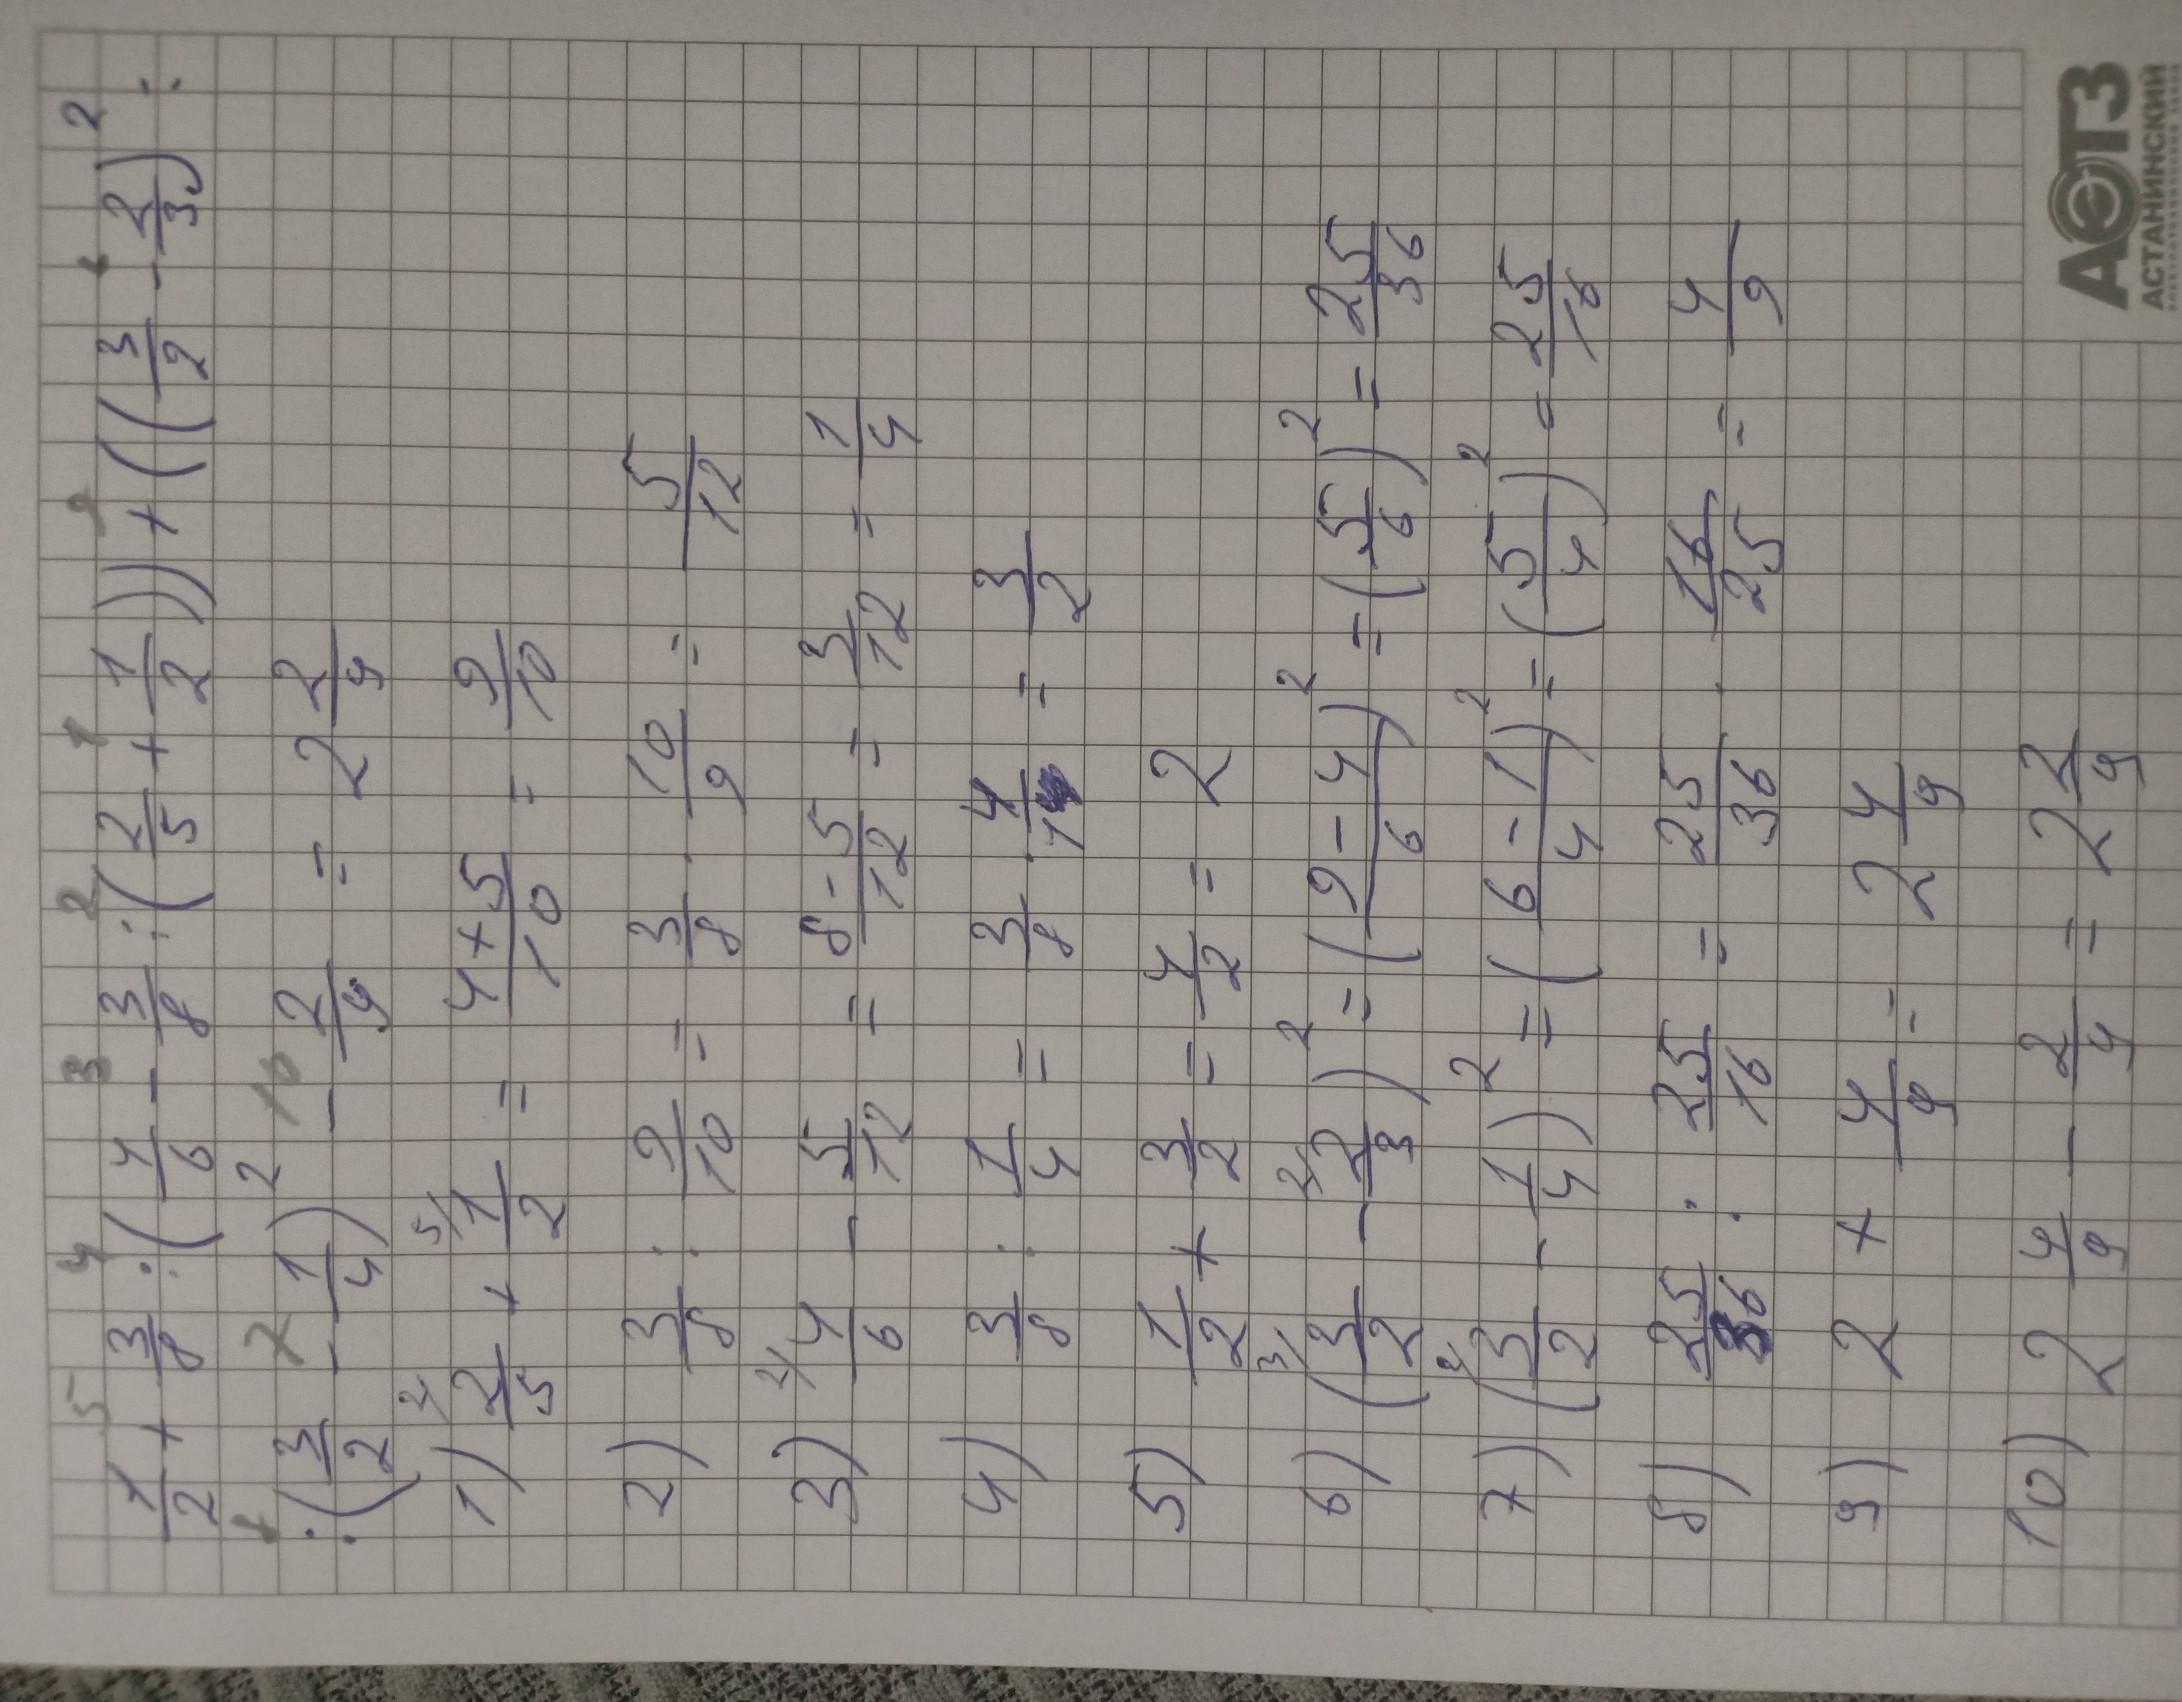 1/2 + 3/8 : (4/6 - 3/8 : (2/5 + 1/2)) + ((3/2 - 2/3)² :
: (3/2 - 1/4)² - 2/9 = 2 2/9
1) 2/5 + 1/2 = 4+5/10 = 9/10
2) 3/8 : 9/10 = 3/8 · 10/9 = 5/12
3) 4/6 - 5/12 = 8-5/12 = 3/12 = 1/4
4) 3/8 : 1/4 = 3/8 · 4/1 = 3/2
5) 1/2 + 3/2 = 4/2 = 2
6) (3/2 - 2/3)² = (9-4/6)² = (5/6)² = 25/36
7) (3/2 - 1/4)² = (6-1/4)² = (5/4)² = 25/16
8) 25/36 : 25/16 = 25/36 · 16/25 = 4/9
9) 2 + 4/9 = 2 4/9
10) 2 4/9 - 2/9 = 2 2/9
АЭТЗ
АСТАНИНСКИЙ